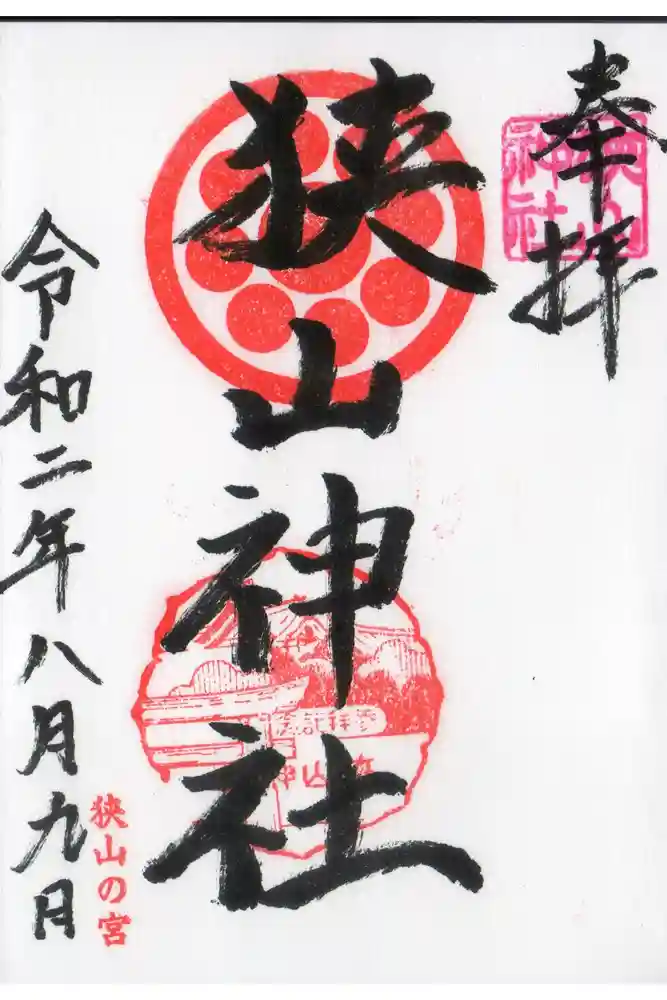 奉拝
狭山神社
狭山神社
参拝記念
令和二年八月九日
狭山の宮